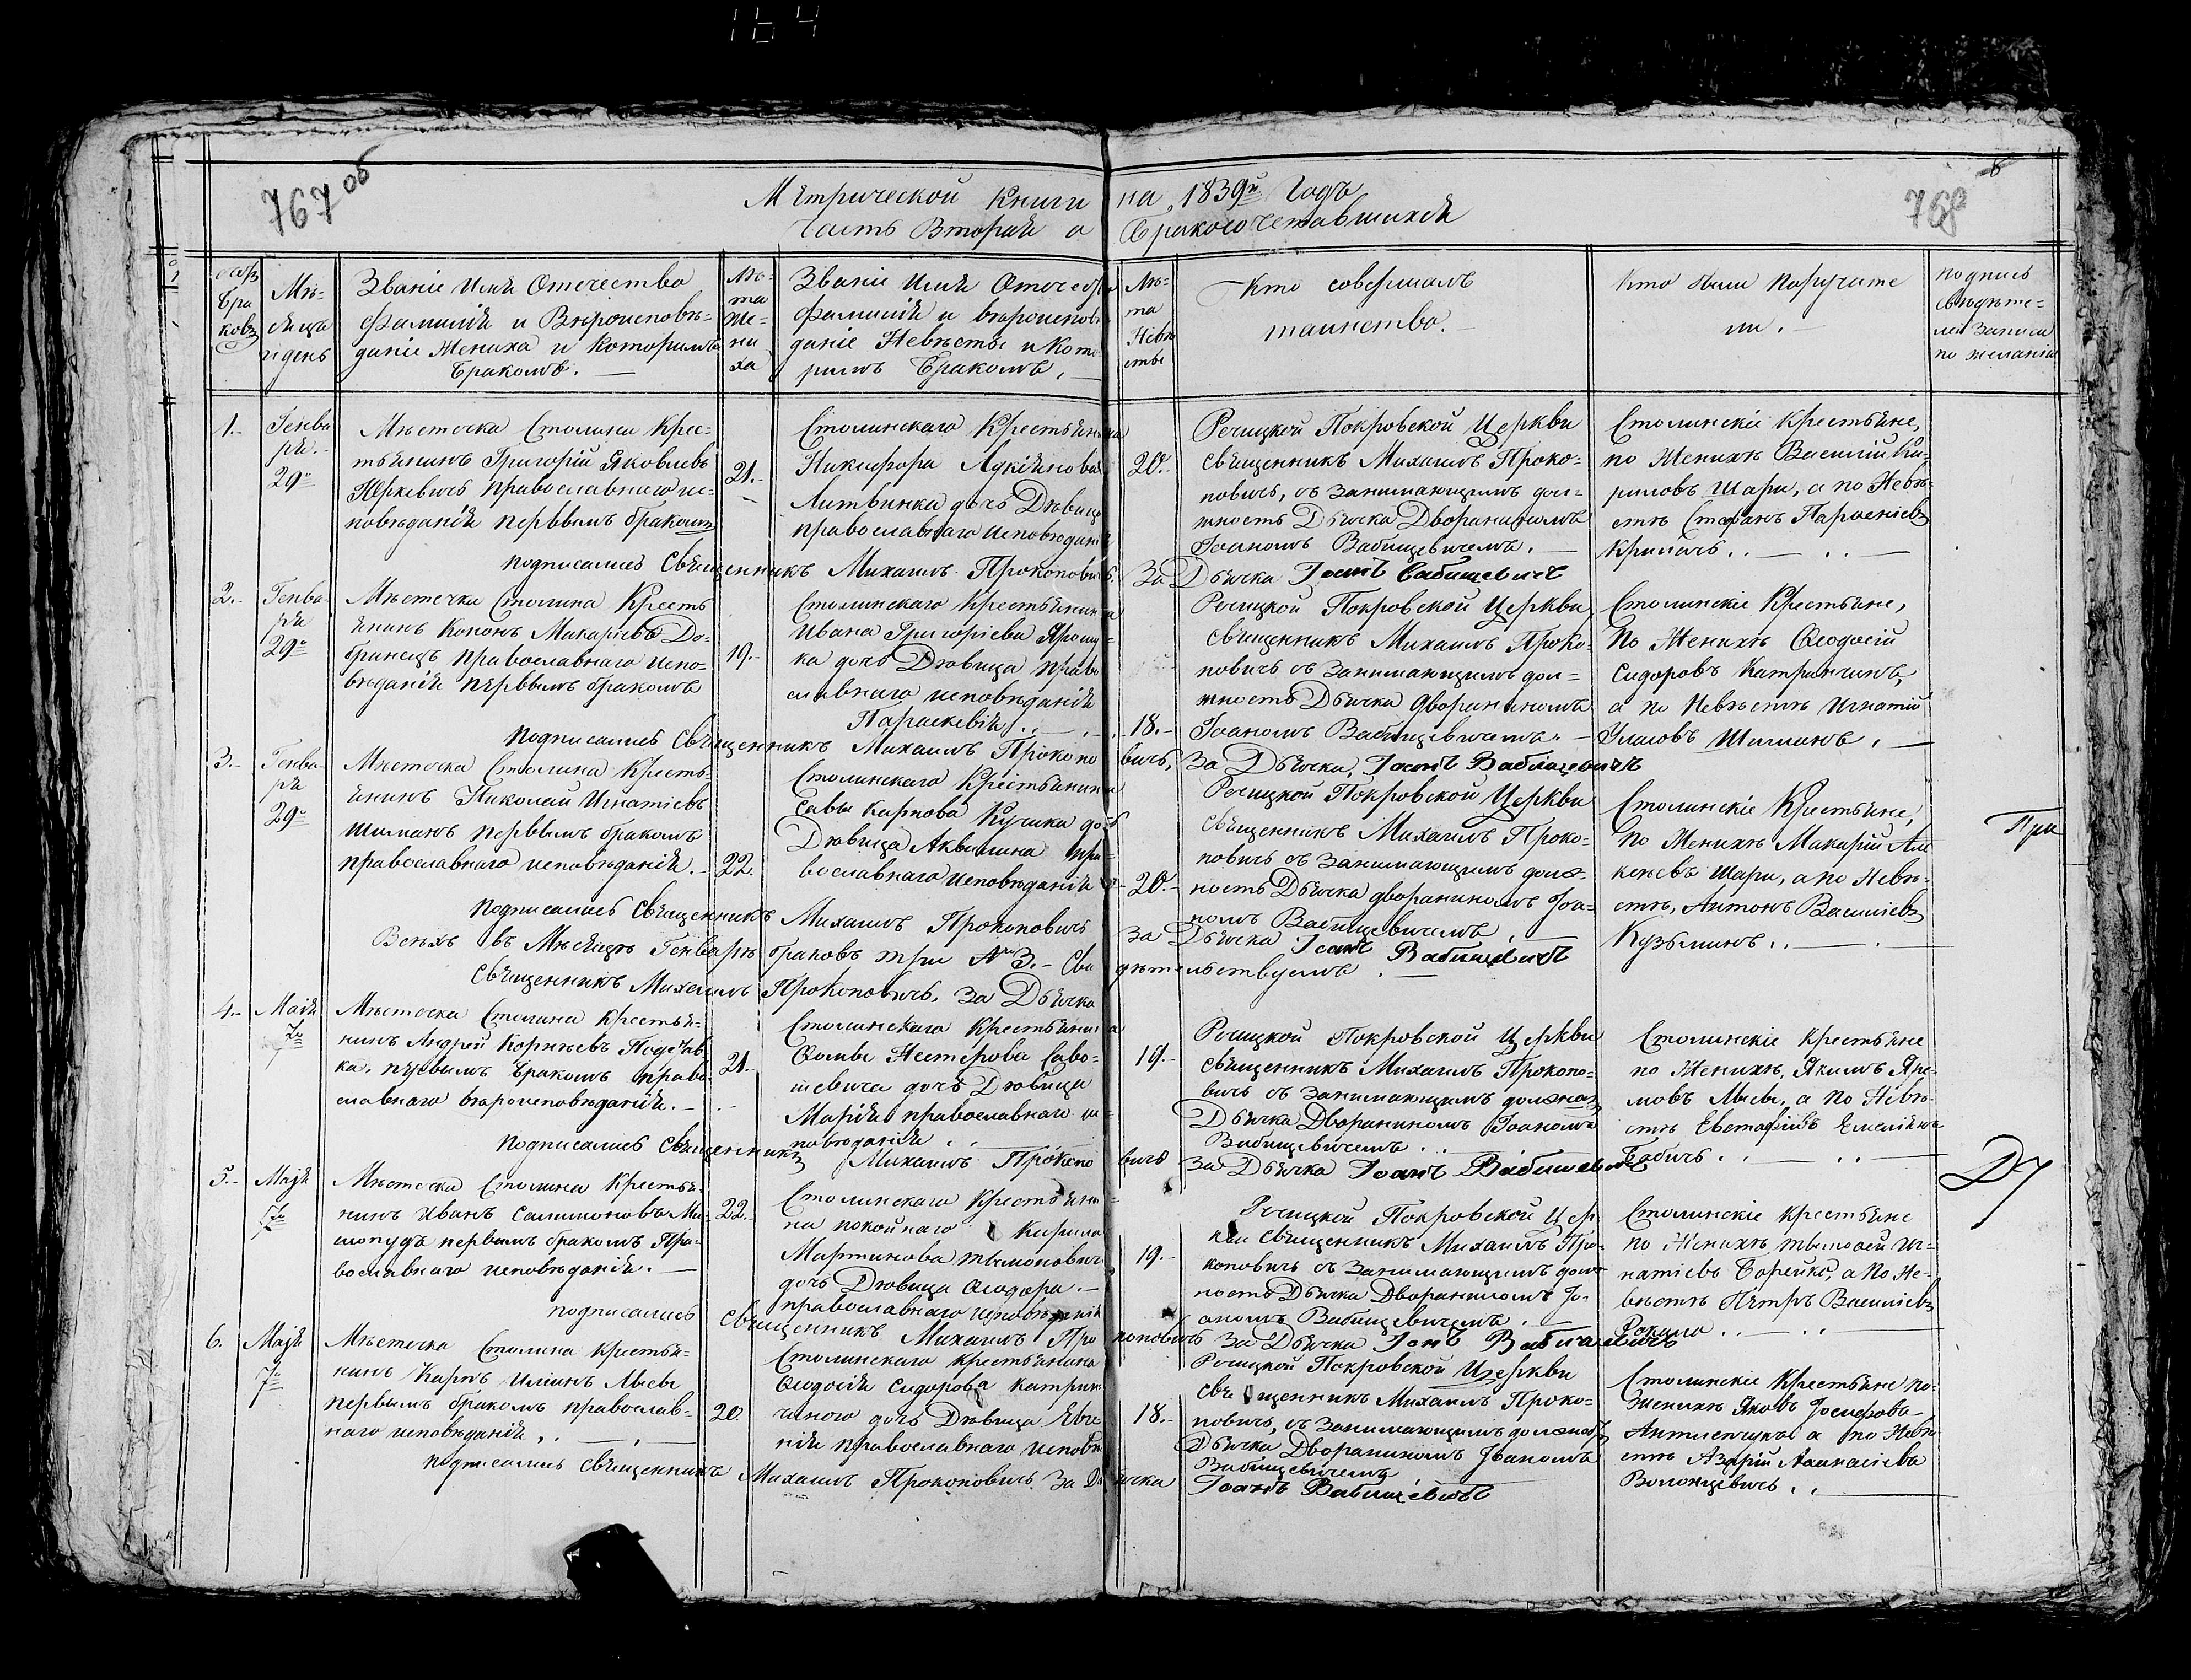 164
767 об
768
Метрической Книги на 1839й Годъ
Часть Вторая о Бракосочетавшихся
Бра
ковъ
Мѣ-
сяцъ
и день
Званіе Имя Отечество
Фамилія и Вѣроисповѣ-
даніе Жениха и Которымъ
Бракомъ. —
Лѣ-
та
Же-
ни
ха
Званіе Имя Отечество
фамилія и вѣроисповѣ
даніе Невѣсты и Кото
рымъ Бракомъ, —
Лѣ-
та
Невѣ
сты
Кто совершалъ
таинство. —
Кто были Поручите
ли. —
подпись
свидѣте-
лей записи
по желанію
1.-
Генва
ря.-
29го
Мѣстечка Столина Крес-
тьянинъ Григорій Яковлевъ
Юркевичъ православнаго ис-
повѣданія первымъ бракомъ
21.-
Столинскаго Крестьянина
Никифора Лукіянова
Литвинка дочь Дѣвица
православнаго исповѣданія
20.-
Речицкой Покровской Церкви
священникъ Михаилъ Проко-
повичъ, съ занимающимъ дол-
жность Дьячка Дворяниномъ
Іоаномъ Вабищевичемъ. —
Столинскіе Крестьяне,
по Женихѣ Василій Ки-
риловъ Шари, а по Невѣ-
стѣ Стефанъ Парфеніевъ
Крипачъ..—..—
подписались Священникъ Михаилъ Прокоповичъ. За Дьячка Іоанъ Вабищевичъ
2.-
Генва-
ря
29го
Мѣстечка Столина Кресть
янинъ Кононъ Макаріевъ До-
бринецъ православнаго испо-
вѣданія первымъ бракомъ
19.-
Столинскаго Крестьянина
Ивана Григоріева Ярош-
ка дочь Дѣвица право
славнаго исповѣданія
Параскевія..—
18.-
Речицкой Покровской Церкви
священникъ Михаилъ Проко-
повичъ съ занимающимъ дол-
жность Дьячка дворяниномъ
Іоаномъ Вабищевичемъ. —
Столинскіе Крестьяне,
По Женихѣ Ѳеодосій
Сидоровъ Катринчинъ,
а по Невѣстѣ Игнатій
Уласовъ Шиманъ, —
Подписались Священникъ Михаилъ Прокоповичъ, За Дьячка, Іоанъ Вабищевичъ
3.-
Генва-
ря
29го
Мѣстечка Столина Кресть-
янинъ Николай Игнатіевъ
Шиманъ первымъ бракомъ
православнаго исповѣданія.-
22.
Столинскаго Крестьянина
Савы Карпова Кучика дочь
Дѣвица Аквилина пра-
вославнаго исповѣданія
20.-
Речицкой Покровской Церкви
священникъ Михаилъ Проко-
повичъ съ занимающимъ долж-
ность Дьячка дворяниномъ Іоа-
номъ Вабищевичемъ, —
Столинскіе Крестьяне,
По Женихѣ Макарій Али
кеевъ Шари, а по Невѣ-
стѣ, Антонъ Василіевъ
Кузьминъ..—
При
Подписались Священникъ Михаилъ Прокоповичъ за Дьячка Іоанъ Вабищевичъ
Всѣхъ въ Мѣсяцѣ Генварѣ браковъ три № 3.- Свидѣтельствуемъ. —
Священникъ Михаилъ Прокоповичъ, За Дьячка
4.-
Маія
7го
Мѣстечка Столина Крестья-
нинъ Андрей Корнѣевъ Подчав-
ка, первымъ бракомъ право-
славнаго вѣроисповѣданія.—
21.-
Столинскаго Крестьянина
Ѳомы Нестерова Саво-
шевича дочь Дѣвица
Марія православнаго ис-
повѣданія..—
19.-
Речицкой Покровской Церкви
священникъ Михаилъ Прокопо-
вичъ съ занимающимъ должнось
Дьячка Дворяниномъ Іоаномъ
Вабищевичемъ..
Столинскіе Крестьяне
по Женихѣ, Якимъ Яре-
мовъ Лысы, а по Невѣ-
стѣ Евстафій Емеліянъ
Бабичъ..—..—
Подписались Священникъ Михаилъ Прокоповичъ За Дьячка Іоанъ Вабищевичъ
5.-
Маія
7го
Мѣстечка Столина Крестья-
нинъ Иванъ Салимоновъ Ми-
лопудъ первымъ бракомъ Пра-
вославнаго исповѣданія.—
22.-
Столинскаго Крестьяни-
на покойнаго Кирила
Мартинова Тимоновича
дочь Дѣвица Ѳеодора.—
православнаго исповѣданія
19.-
Речицкой Покровской Цер-
кви священникъ Михаилъ Про-
коповичъ съ занимающимъ долж
ность Дьячка Дворяниномъ Іо-
аномъ Вабищевичемъ.—
Столинскіе крестьяне
по Женихѣ, Тимофей Иг-
натіевъ Борейко, а По Не-
вѣстѣ Петръ Василіевъ
Рокало..—..
подписались Священникъ Михаилъ Прокоповичъ За Дьячка Іоанъ Вабищевичъ
6.
Маія
7го
Мѣстечка Столина Крестья-
нинъ Карпъ Иліинъ Лысы
первымъ бракомъ православ-
наго исповѣданія,.—
20.
Столинскаго крестьянина
Ѳеодосія Сидорова Катрин-
чиного дочь Дѣвица Евге
нія православнаго исповѣ
18.-
Речицкой Покровской Церкви
священникъ Михаилъ Проко-
повичъ, съ занимающимъ должнось
Дьячка Дворяниномъ Іоаномъ
Вабищевичемъ
Столинскіе Крестьяне по-
Женихѣ Яковъ Іосифовъ
а по Невѣ
стѣ Азарій Афанасіевъ
Волонцевичъ..—
подписались священникъ Михаилъ Прокоповичъ. За Дьячка Іоанъ Вабищевичъ